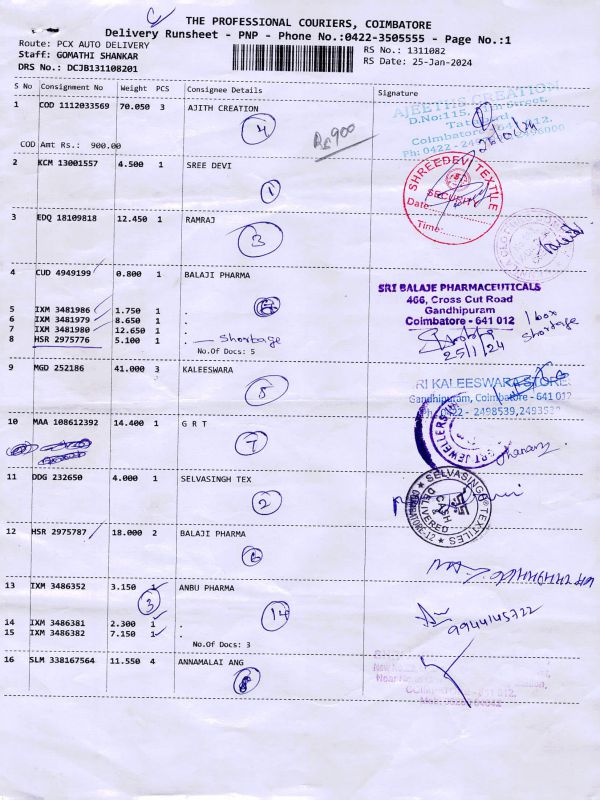 THE PROFESSIONAL COURIERS, COIMBATORE
Delivery Runsheet - PNP - Phone No.:0422-3505555 - Page No.:1
Route: PCX AUTO DELIVERY
RS No.: 1311082
Staff: GOMATHI SHANKAR
RS Date: 25-Jan-2024
DRS No.: DCJB131108201
S No Consignment No Weight PCS Consignee Details Signature
1 COD 1112033569 70.050 3 AJITH CREATION
4
Rs 900
COD Amt Rs.: 900.00
AJEETH CREATION
D.No:115,
Coimbatore
25/01/24
2 KCM 13001557 4.500 1 SREE DEVI
1
SHREEDEVI TEXTILE
SECURITY
Date:
Time:
3 EDQ 18109818 12.450 1 RAMRAJ
3
4 CUD 4949199 0.800 1 BALAJI PHARMA
5 IXM 3481986 1.750 1 .
6 IXM 3481979 8.650 1 .
7 IXM 3481980 12.650 1 .
8 HSR 2975776 5.100 1 . shortage
No.Of Docs: 5
SRI BALAJE PHARMACEUTICALS
466, Cross Cut Road
Gandhipuram
Coimbatore - 641 012
1 box
shortage
25/1/24
9 MGD 252186 41.000 3 KALEESWARA
5
SRI KALEESWARA STORES
Gandhipuram, Coimbatore - 641 012
Ph: 0422 - 2498539,
10 MAA 108612392 14.400 1 G R T
7
GRT JEWELLERS
11 DDG 232650 4.000 1 SELVASINGH TEX
2
SELVASINGH TEXTILES
CASH
DELIVERED
12 HSR 2975787 18.000 2 BALAJI PHARMA
6
13 IXM 3486352 3.150 1 ANBU PHARMA
3
14
14 IXM 3486381 2.300 1 .
15 IXM 3486382 7.150 1 .
No.Of Docs: 3
9944145722
16 SLM 338167564 11.550 4 ANNAMALAI ANG
8